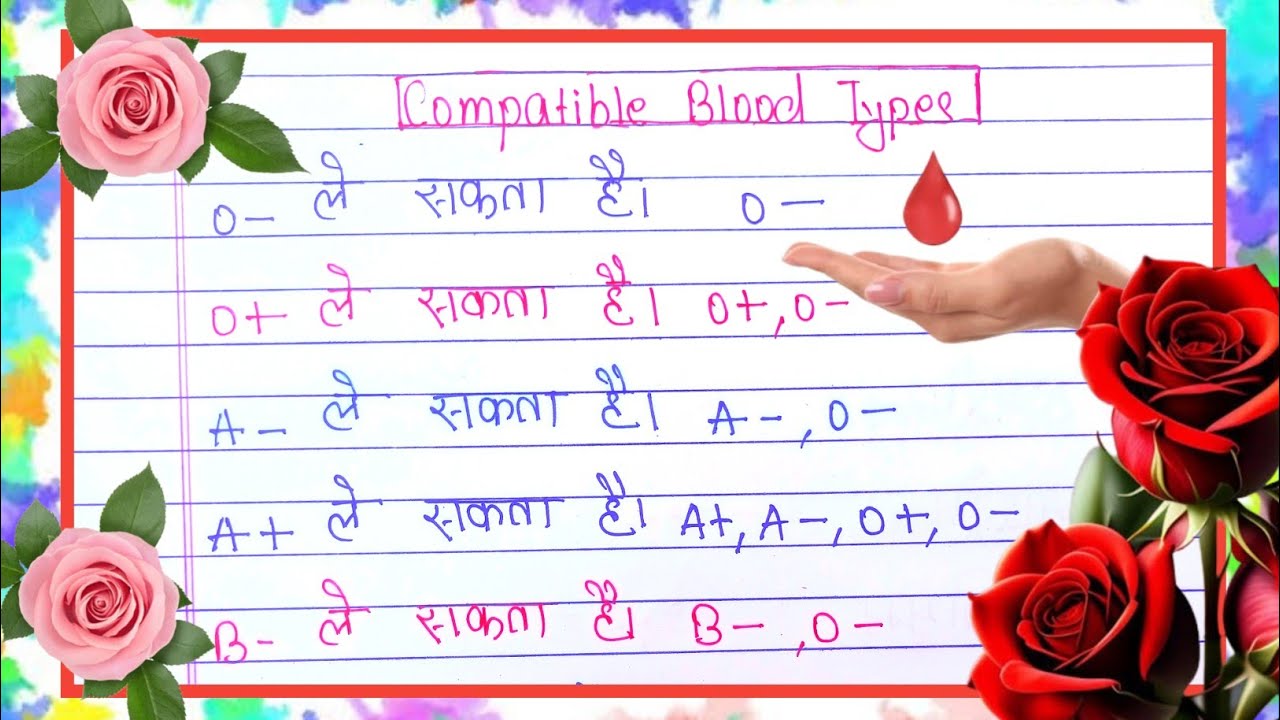 Compatible Blood Types
O- ले सकता है। O-
O+ ले सकता है। O+,O-
A- ले सकता है। A-,O-
A+ ले सकता है। A+,A-,O+,O-
B- ले सकता है। B-,O-